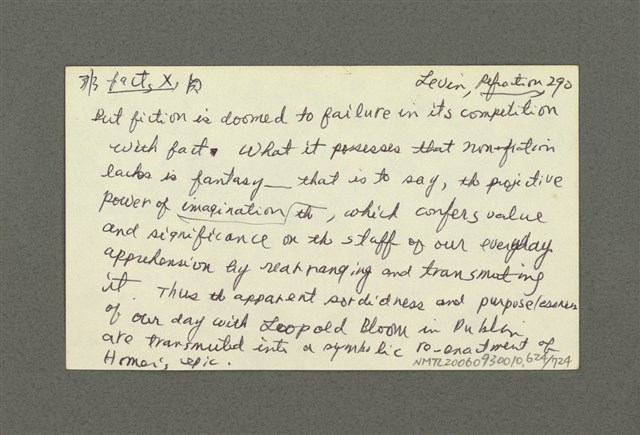 fact, X,
Levin, Refraction, 290
But fiction is doomed to failure in its competition
with fact. What it possesses that non-fiction
lacks is fantasy — that is to say, th projective
power of imagination th, which confers value
and significance on th stuff of our everyday
apprehension by rearranging and transmuting
it. Thus th apparent sordidness and purposelessness
of our day with Leopold Bloom in Dublin
are transmuted into a symbolic re-enactment of
Homer's epic.
NMTL20060930010,624/724